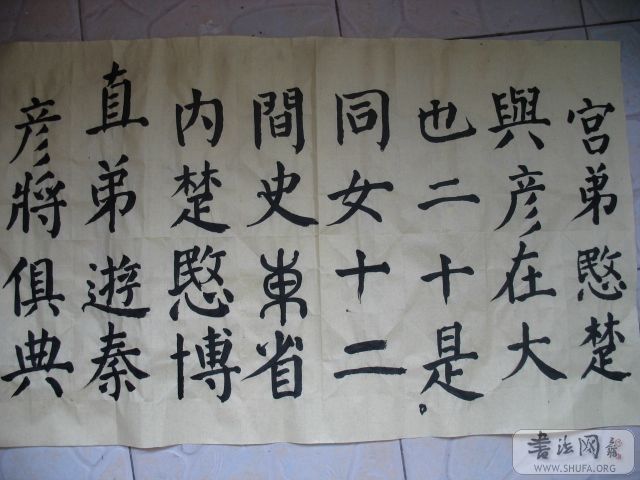 宫弟愍楚
與彦在大
也二十是。
同女十二
間史東省
内楚愍博
直弟遊秦
彦將俱典
書法网
WWW.SHUFA.ORG